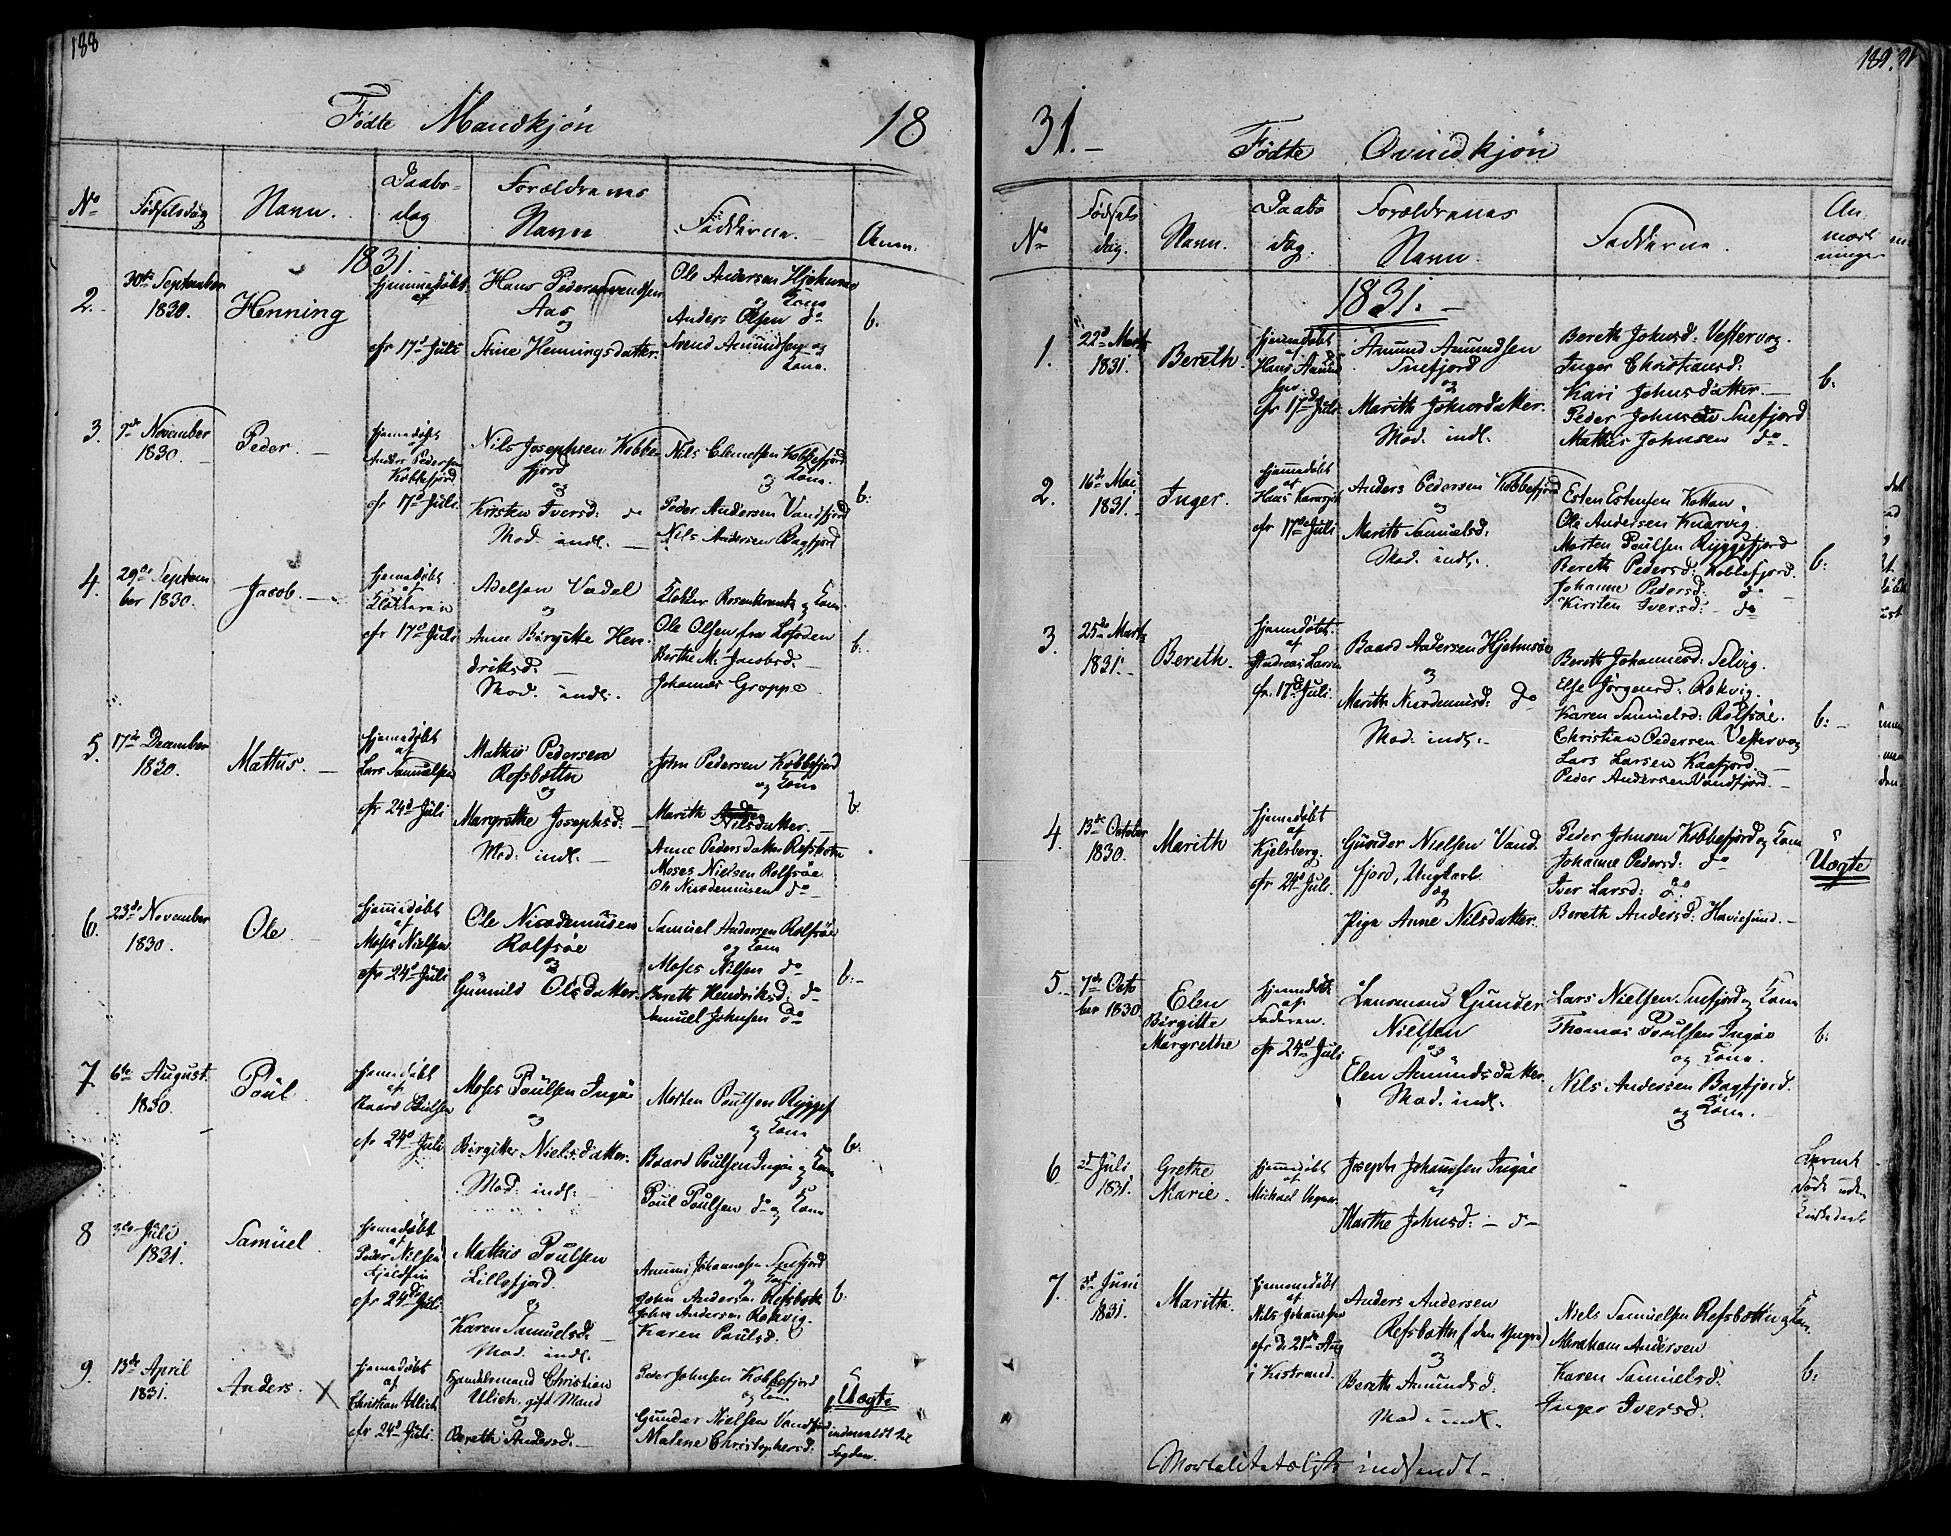 188
Födte Mandkjön
18
No
Födselsdag
Navn.
Daabs-
dag
Forældrenes
Navne
Fadderne.
Anm.
1831.
2.
30te September
1830.
Henning
hjemmedöbt
af
cfr 17d Juli
Hans Pedersen
Aas
og
Stine Henningsdatter.
Ole Andersen Hjelmsö
og Kone
Anders Olsen do
Svend Amundsen og
Kone.
b.
3.
7de November
1830.
Peder.
hjemmedöbt
af
Anders Pedersen
Kobbefjord
cfr 17d Juli
Nils Josephsen Kobbe
fjord
og
Kirsten Iversd: do
Mod. indt.
Nils Clemetsen Kobbefjord
og Kone.
Peder Andersen Vandfjord
Nils Andersen Bagfjord
b.
4.
29de Septem
ber 1830.
Jacob.
hjemmedöbt
af
Klokkeren
cfr 17d Juli
Adelsen Vadel
og
Anne Birgitte Hen
driksd:
Mod. indt.
Klokker Rosenkrantz og Kone.
Ole Olsen fra Lofoden
Berthe M. Jacobsd.
Johannes Groppe.
b.
5.
17de December
1830.
Mathis.
hjemmedöbt
af
Lars Samuelsen
cfr 24d Juli
Mathis Pedersen
Refsbotten
og
Margrethe Josephsd:
Mod. indt.
John Pedersen Kobbefjord
og Kone
Marith
Nilsdatter.
Anne Pedersdatter Refsbotn
Moses Nielsen Rolfsöe
Ole Nicodemusen do
b
6.
23de November
1830.
Ole.
hjemmedöbt
af
Moses Nielsen
cfr 24d Juli
Ole Nicodemusen
Rolfsöe
og
Gunnild Olsdatter.
Samuel Andersen Rolfsöe
og Kone
Moses Nilsen do
Bereth Hendriksd: do
Samuel Johnsen do
b.
7.
6te August
1830.
Poul.
hjemmedöbt
af
Baard
cfr 24d Juli
Moses Poulsen Ingöe
og
Birgitte Nielsdatter.
Mod. indt.
Morten Poulsen Ryggef
og Kone
Baard Poulsen Ingöe og Kone
Poul Poulsen do og Kone
b.
8
3de Juli
1831.
Samuel.
hjemmedöbt
af
Peder Nilsen
cfr 24d Juli
Mathis Poulsen
Lillefjord
og
Karen Samuelsd.
Mod. indt.
Amund Johannesen Snefjord
og Kone
John Andersen Refsbotn
John Andersen Rokvig.
Karen Paulsd.
b.
9.
13de April
1831.
Anders. X
hjemmedöbt
af
Christian Ulich
cfr 24d Juli.
Handelsmand Christian
Ulich, gift Mand
og
Bereth Andersd.
Peder Johnsen Kobbefjord
og Kone
Gunder Nielsen Vandfjord
Malene Christophersd.
Uægte
indmeldt til
Fogden.
189.
31.
Födte Qvindkjön
No
Födsels
dag.
Navn.
Daabs
dag.
Forældrenes
Navn.
Fadderne.
An-
mærk
ninger
1831.
1.
22d Marts
1831.
Bereth.
hjemmedöbt
af
Hans Amund
sen.
cfr 17d Juli
Amund Amundsen
Snefjord
og
Marith Johnsdatter.
Mod. indt.
Bereth Johnsd: Vestervog.
Inger Christiansd:
Kari Johnsdatter
Peder Johnsen Snefjord
Mathis Johnsen do
b.
2.
16de Mai
1831.
Inger.
hjemmedöbt
af
Hans
cfr 17d Juli
Anders Pedersen Kobbefjord
og
Marith Samuelsd:
Mod. indt.
Esten Estensen
Ole Andersen Knarvig.
Morten Poulsen Ryggefjord
Bereth Pedersd: Kobbefjord.
Johanne Pedersd: do
Kirsten Iversd: do
b.
3.
25de Marts
1831.
Bereth.
hjemmedöbt
af
Andreas Larsen
cfr. 17d Juli.
Baard Andersen Hjelmsöe
og
Marith Nicodemusd: do
Mod. indt.
Bereth Johannesd: Selvig.
Else Jörgensd: Rokvig.
Karen Samuelsd: Rolfsöe.
Christian Pedersen Vestervog
Lars Larsen Kaafjord.
Peder Andersen Vandfjord.
b.
4.
13de October
1830.
Marith
hjemmedöbt
af
Kjelsberg
cfr 24d Juli.
Gunder Nielsen Vand
fjord, Ungkarl
og
Pige Anne Nilsdatter.
Peder Johnsen Kobbefjord og Kone
Johanne Pedersd: do
Iver Larsd: do
Bereth Andersd. Havösund.
Uægte
5.
7de Octo
ber 1830.
Elen
Birgitte
Margrethe
hjemmedöbt
af
Faderen.
cfr 24d Juli
Lensmand Gunder
Nielsen
og
Elen Amundsdatter
Mod. indt.
Lars Nielsen Snefjord og Kone
Thomas Poulsen Ingöe
og Kone.
Nils Andersen Bagfjord.
og Kone.
b.
6
2d Juli
1831.
Grethe
Marie.
hjemmedöbt
af
Michael
Joseph Johansen Ingöe
og
Marthe Johnsd: do
död uden
7.
3d Juni
1831.
Marith.
hjemmedöbt
af
Nils Johansen
cfr d: 21de Aug
i Kistrand.
Anders Andersen
Refsbotten (den Yngre)
og
Bereth Amundsd.
Mod indt.
Niels Samuelsen Refsbotten og Kone.
Abraham Andersen
Karen Samuelsd.
Inger Iversd.
b.
Mortalitetsliste indsendt.